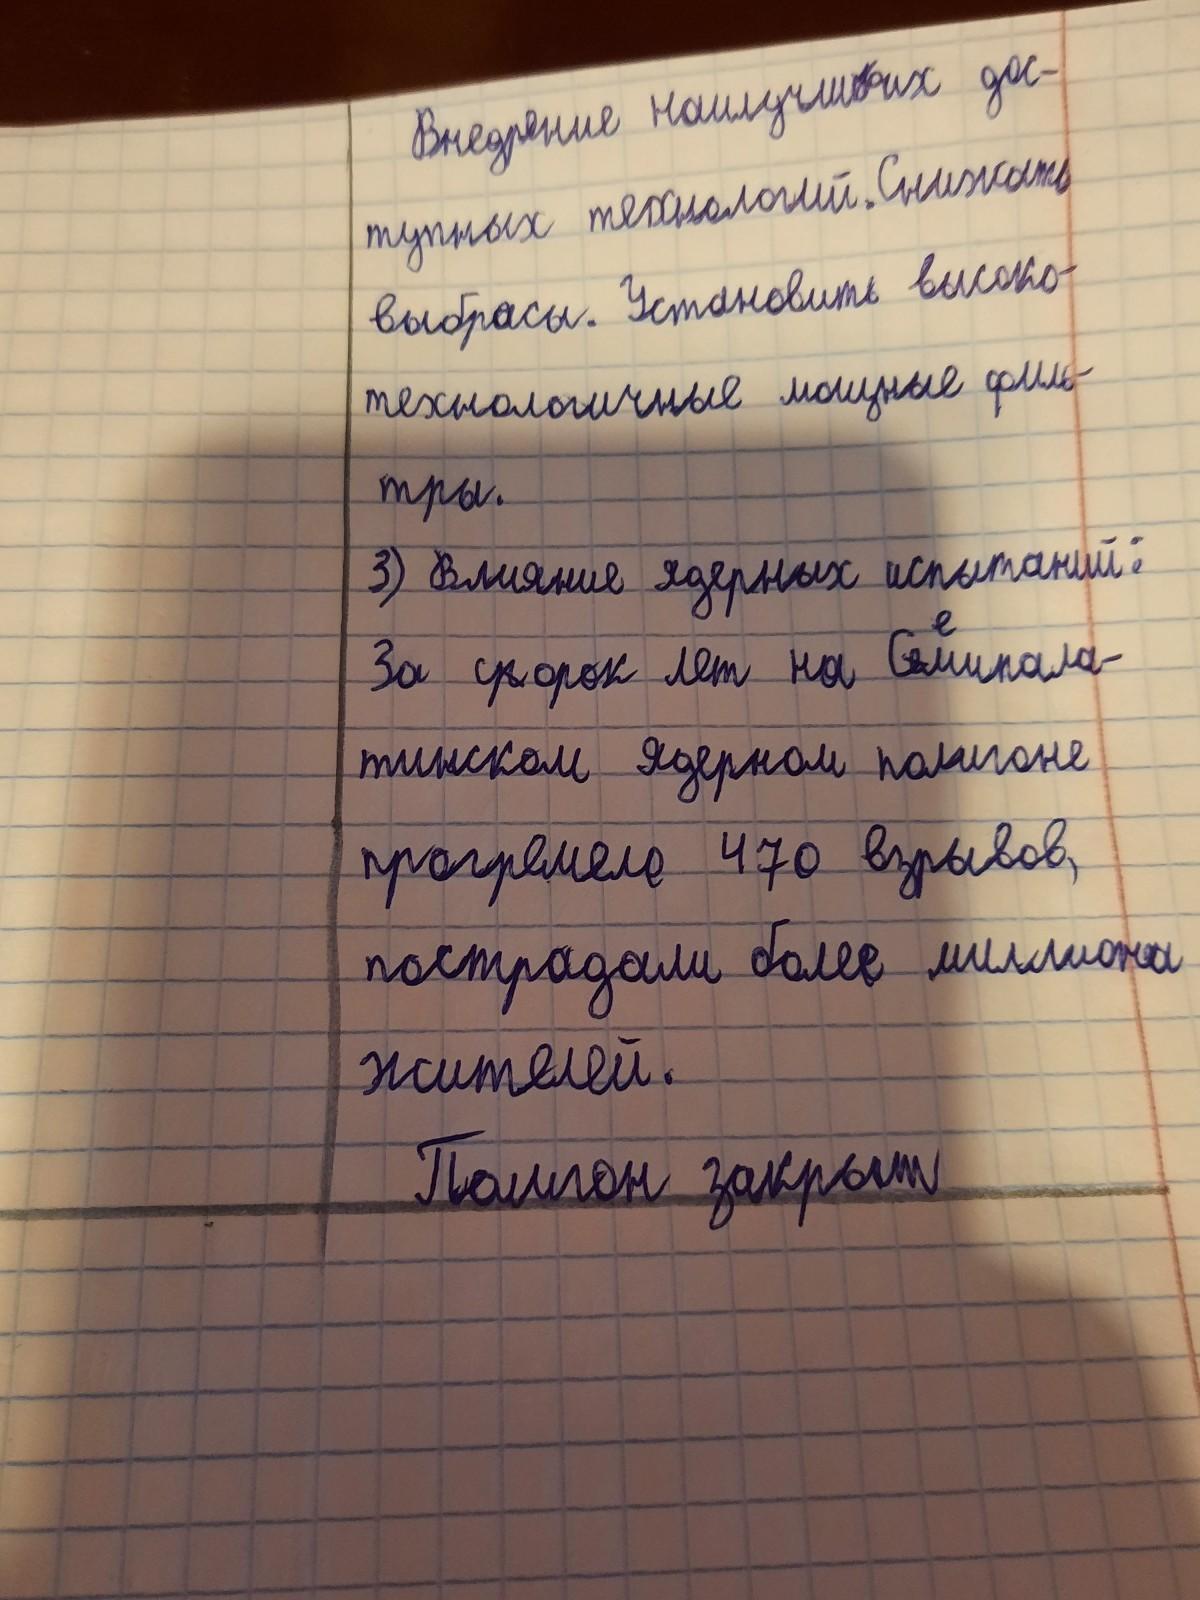 Внедрение наилучших дос-
тупных технологий. Снижать
выбрасы. Установить высоко-
технологичные мощные филь-
тры.
3) Влияние ядерных испытаний:
За сорок лет на Семипала-
тинском ядерном полигоне
прогремело 470 взрывов,
пострадали более миллиона
жителей.
Полигон закрыт